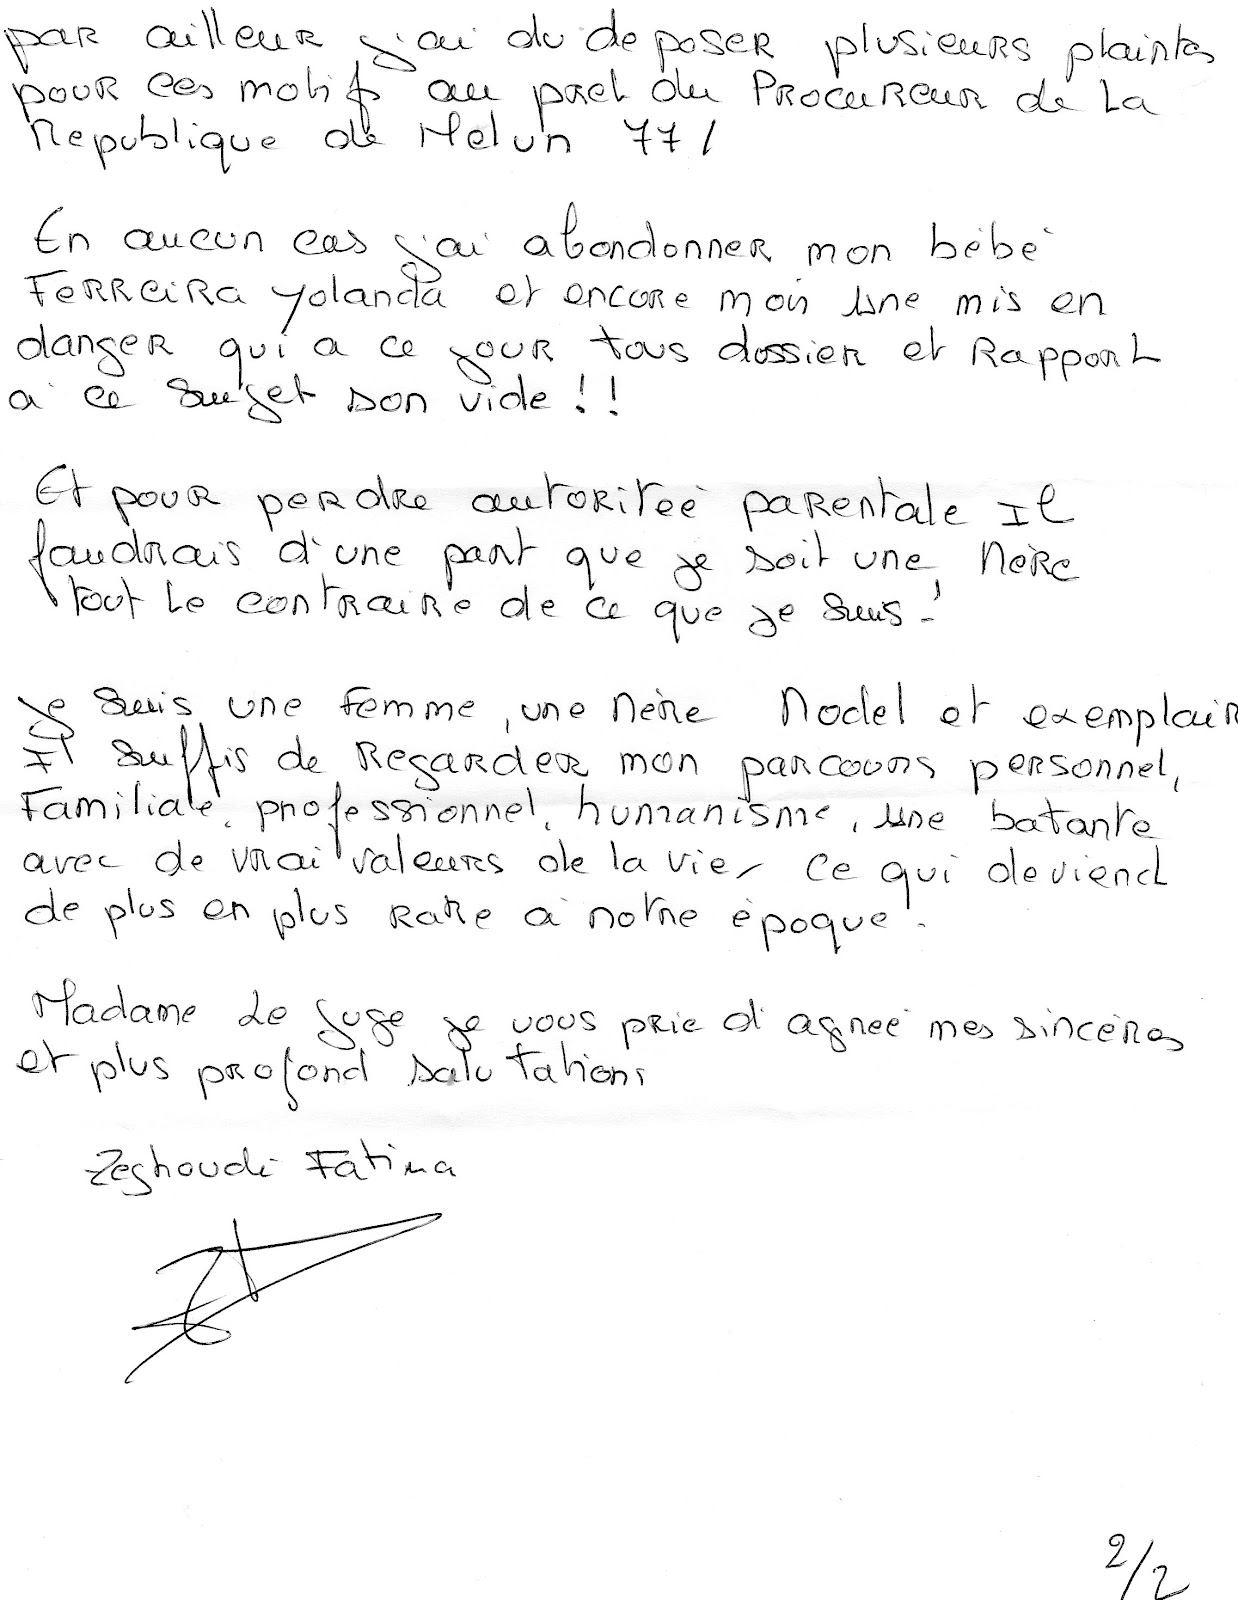 par ailleur j'ai du deposer plusieurs plaintes
pour ces motifs au pret du Procureur de La
Republique de Melun 77/
En aucun cas j'ai abondonner mon bébé
Ferreira Yolanda et encore mois une mis en
danger qui a ce jour tous dossier et Rapport
a ce sujet son vide !!
Et pour perdre autoriteé parentale Il
faudrais d'une part que je soit une Mère
tout Le contraire de ce que je suis !
Je suis une femme, une Mère Model et exemplair
Il suffis de Regarder mon parcours personnel,
Familiale, professionnel, humanisme, une batante
avec de vrai valeurs de la vie, ce qui deviend
de plus en plus Rare a notre époque.
Madame Le Juge je vous prie d'agreé mes sincères
et plus profond salutations
Zeghoudi Fatima
2/2